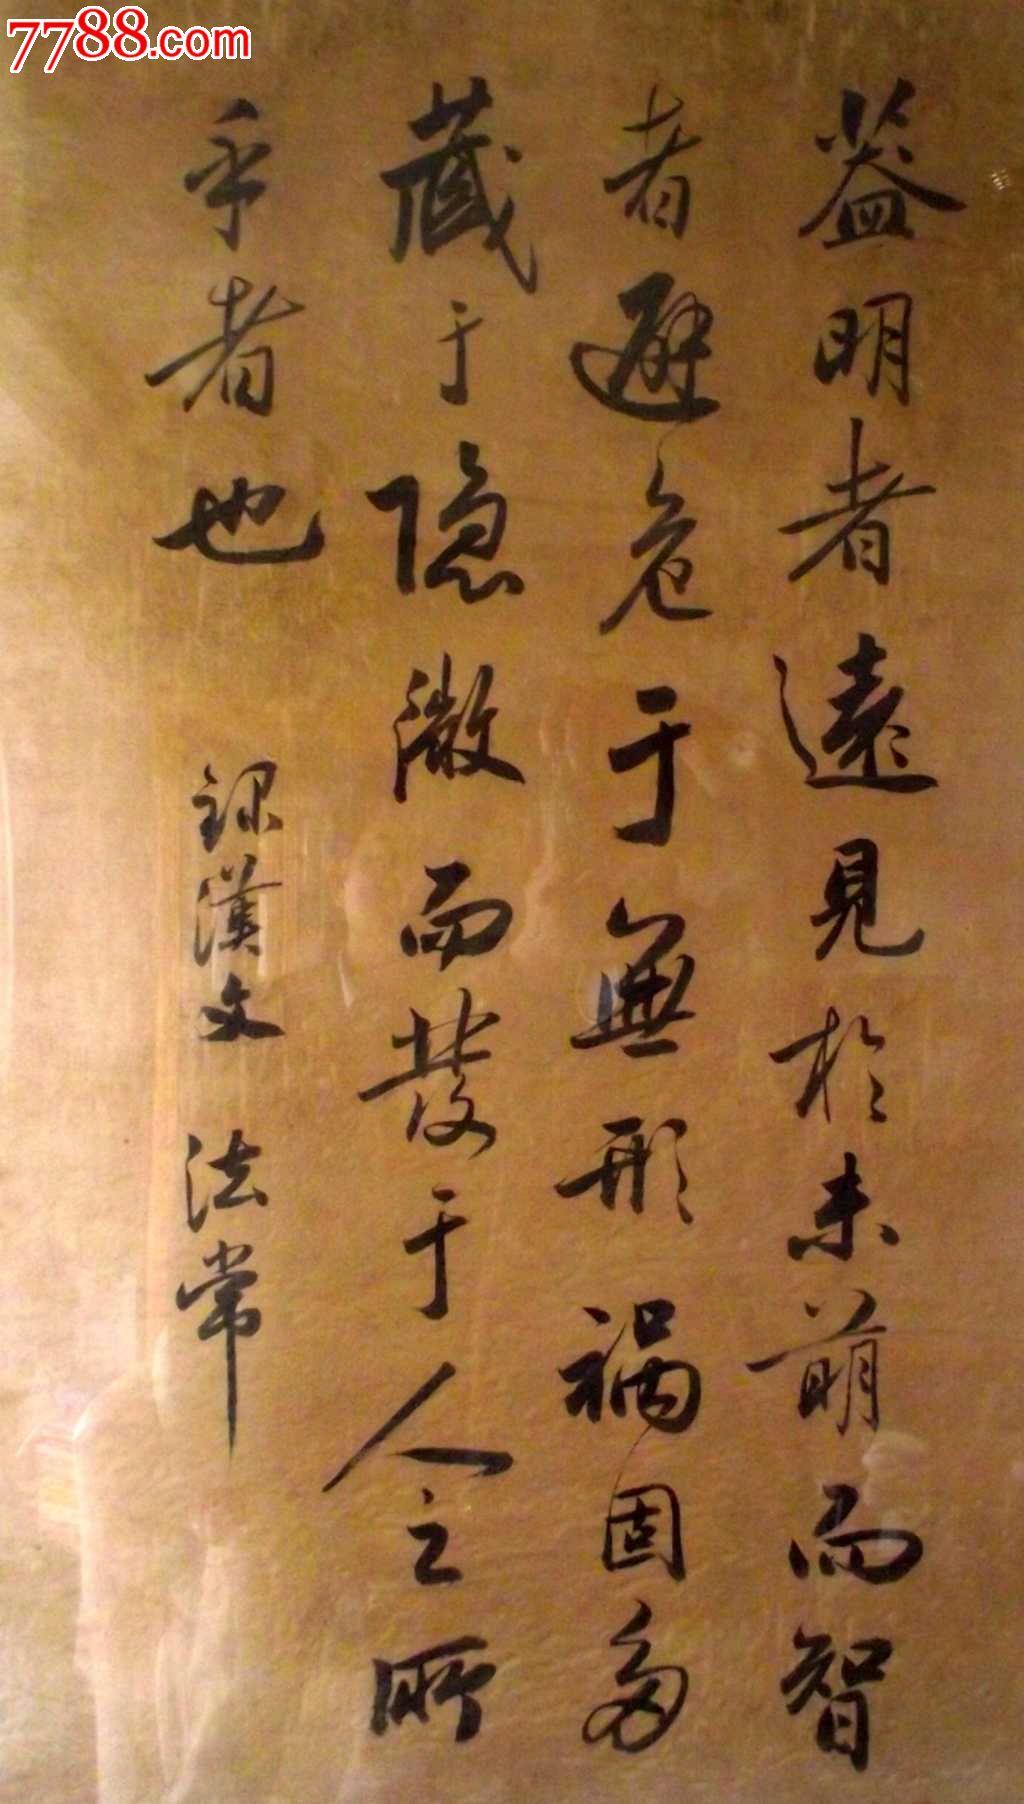 7788.com
葢明者遠見於未萌而智
者避危于無形禍固多
藏于隐微而發于人之所
乎者也 録漢文 法常